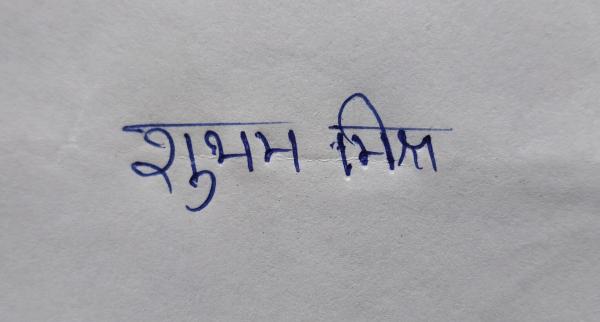 शुभम मिश्र